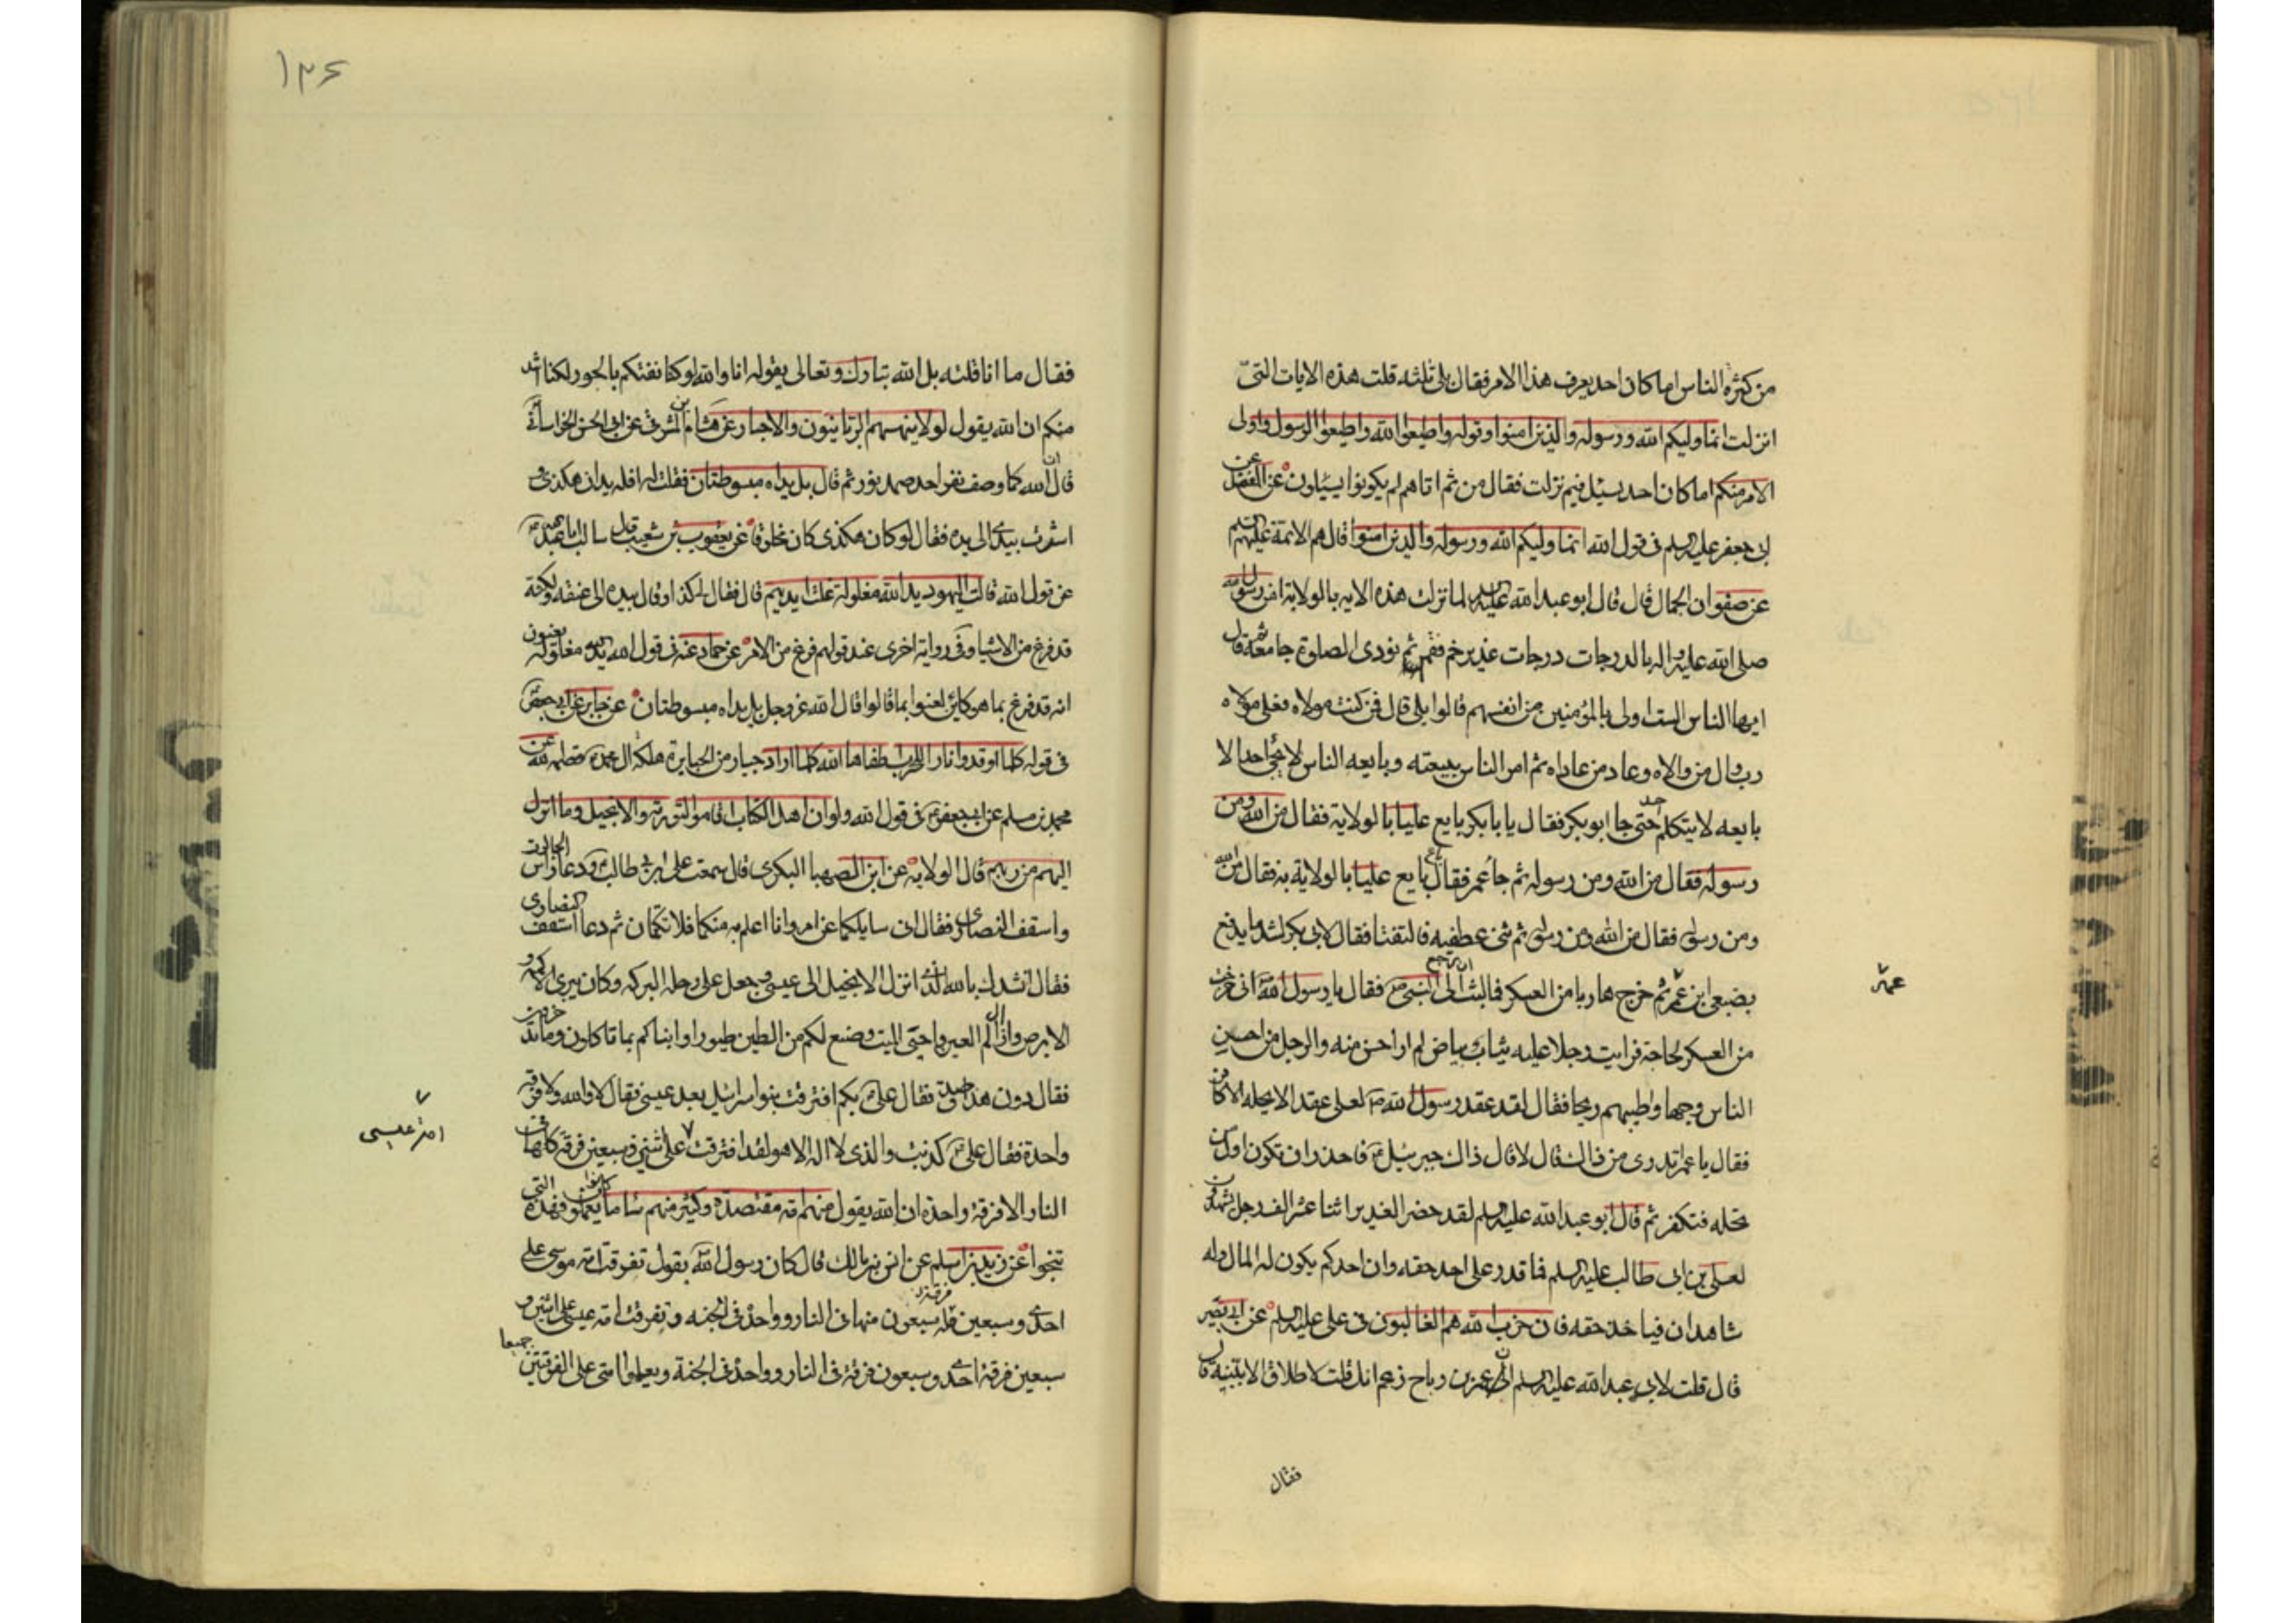 من كثرة الناس اما كان احد يعرف هذا الامر فقال بلى ثلثه قلت هذه الايات التى
انزلت انما وليكم الله ورسوله والذين امنوا وقوله واطيعوا الله واطيعوا الرسول واولى
الامر منكم اما كان احد يسئل فيم نزلت فقال من ثم اتاهم لم يكونوا يسئلون عن المفضل عن
ابى جعفر عليه السلم فى قول الله انما وليكم الله ورسوله والذين امنوا قال هم الائمة عليهم السلم
عن صفوان الجمال قال قال ابو عبد الله عليه السلم لما نزلت هذه الايه بالولاية امر رسول الله
صلى الله عليه واله بالدرجات درجات غدير خم فقم ثم نودى الصلوة جامعة ثم قال
ايها الناس الست اولى بالمؤمنين من انفسهم قالوا بلى قال فمن كنت مولاه فعلى مولاه
رب وال من والاه وعاد من عاداه ثم امر الناس ببيعته وبايعه الناس لا يجئ احد الا
بايعه لا يتكلم احد حتى جا ابو بكر فقال يا با بكر بايع عليا بالولاية فقال من الله ومن
رسوله فقال من الله ومن رسوله ثم جا عمر فقال بايع عليا بالولاية به فقال من الله
ومن رسوله فقال من الله ومن رسوله ثم ثنى عطفيه فالتقتا فقال لابى بكر لشد ما يرفع
بضبعى ابن عمه ثم خرج هاربا من العسكر فما لبث ان رجع الى النبى ص فقال يا رسول الله ص انى خرجت
عمر
من العسكر لحاجة فرايت رجلا عليه ثياب بياض لم ار احسن منه والرجل من احسن
الناس وجها واطيبهم ريحا فقال لقد عقد رسول الله ص لعلى عقدا لا يحله الا كافر
فقال يا عمر اتدرى من ذاك قال لا قال ذاك جبرئيل ع فاحذر ان تكون اول من
تحله فتكفر ثم قال ابو عبد الله عليه السلم لقد حضر الغدير اثنا عشر الف رجل يشهدون
لعلى بن ابى طالب عليه السلم فما قدر على اخذ حقه وان احدكم يكون له المال وله
شاهدان فياخذ حقه فان حزب الله هم الغالبون فى على عليه السلم عن ابى بصير
قال قلت لابى عبد الله عليه السلم ان عمر بن رباح زعم انك قلت لا طلاق الا ببينة قال
فقال
١٣۶
فقال ما انا قلته بل الله تبارك وتعالى يقوله انا والله لو كنا نفتيكم بالجور لكنا اشد
منكم ان الله يقول لولا ينهيهم الربانيون والاحبار عن هشام بن المشرقى عن ابى الحسن الخراسانى
قال ان الله كما وصف نفسه احد صمد نور ثم قال بل يداه مبسوطتان فقلت له افله يدان هكذى و
اشرت بيدى الى يده فقال لو كان هكذى كان مخلوقا عن يعقوب بن شعيب قال سالت ابا عبد الله
عن قول الله قالت اليهود يد الله مغلولة غلت ايديهم قال فقال لى كذا وقال بيده الى عنقه ولكنه
قد فرغ من الاشيا وفى رواية اخرى عنه قولهم فرغ من الامر عن حماد عنه فى قول الله يد الله مغلولة يعنون
انه قد فرغ مما هو كائن لعنوا بما قالوا قال الله عز وجل بل يداه مبسوطتان عن جابر عن ابى جعفر
فى قوله كلما اوقدوا نارا للحرب اطفاها الله كلما اراد جبار من الجبابرة هلكة ال محمد قصمه الله عن
محمد بن مسلم عن ابى جعفر ع فى قول الله ولو ان اهل الكتاب اقاموا التورية والانجيل وما انزل
اليهم من ربهم قال الولاية عن ابن الصهبا البكرى قال سمعت على بن ابى طالب ودعا راس الجالوت
واسقف النصارى فقال انى سايلكما عن امر وانا اعلم به منكما فلا تكتمان ثم دعا اسقف النصارى
فقال انشدك بالله الذى انزل الانجيل الى عيسى وجعل على رجله البركه وكان يبرى الاكمه و
الابرص وازال الم العين واحيى الميت وصنع لكم من الطين طيورا وانباكم بما تاكلون وما تدخرون
فقال دون هذا صدق فقال على ع بكم افترقت بنو اسرائيل بعد عيسى فقال لا والله ولا فرقه
واحدة فقال على ع كذبت والذى لا اله الا هو لقد افترقت على ثنتى وسبعين فرقة كلها فى
امة عيسى
النار الا فرقة واحدة ان الله يقول منهم امة مقتصدة وكثير منهم سا ما كانوا يعملون فهذه التى
تنجوا عن زيد بن اسلم عن انس بن مالك قال كان رسول الله ص يقول تفرقت امة موسى على
احدى وسبعين مله سبعون منها فى النار وواحدة فى الجنه وتفرقت امة عيسى على اثنين و
سبعين فرقة احدى وسبعون فرقة فى النار وواحدة فى الجنة ويعلوا امتى على الفرقتين جميعا